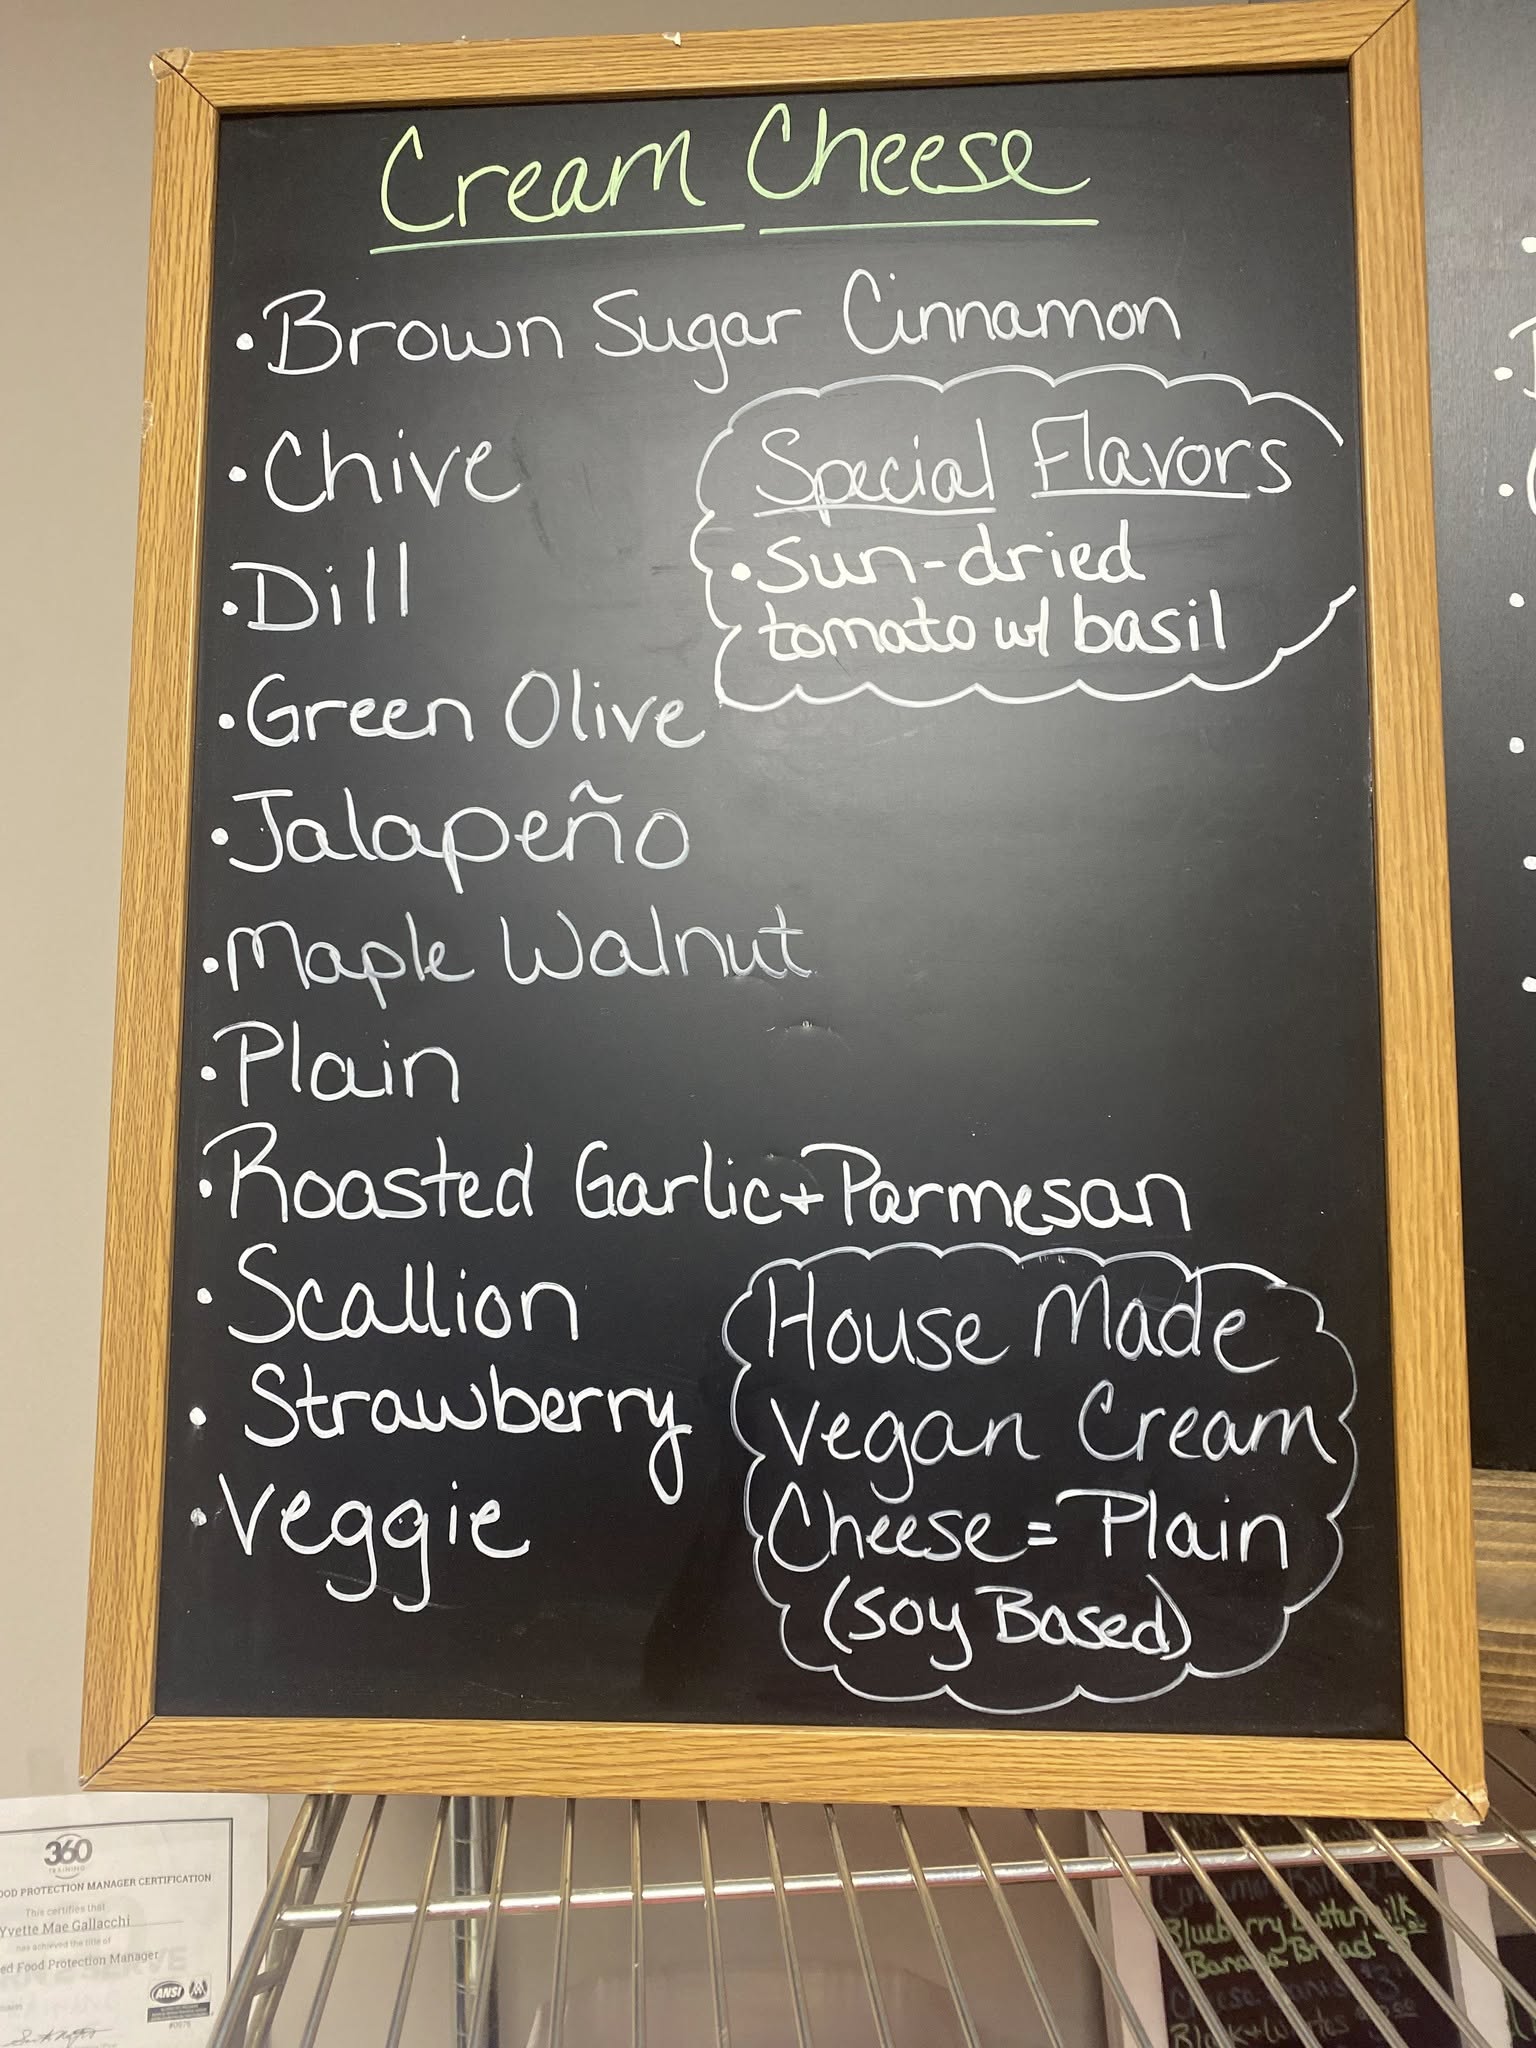 Cream Cheese
• Brown Sugar Cinnamon
• Chive
• Dill
• Green Olive
• Jalapeño
• Maple Walnut
• Plain
• Roasted Garlic + Parmesan
• Scallion
• Strawberry
• Veggie
Special Flavors
• Sun-dried
tomato w/ basil
House Made
Vegan Cream
Cheese = Plain
(Soy Based)
360
TRAINING
OOD PROTECTION MANAGER CERTIFICATION
This certifies that
Yvette Mae Gallacchi
has achieved the title of
ed Food Protection Manager
ANSI
Blueberry Buttermilk
Banana Bread